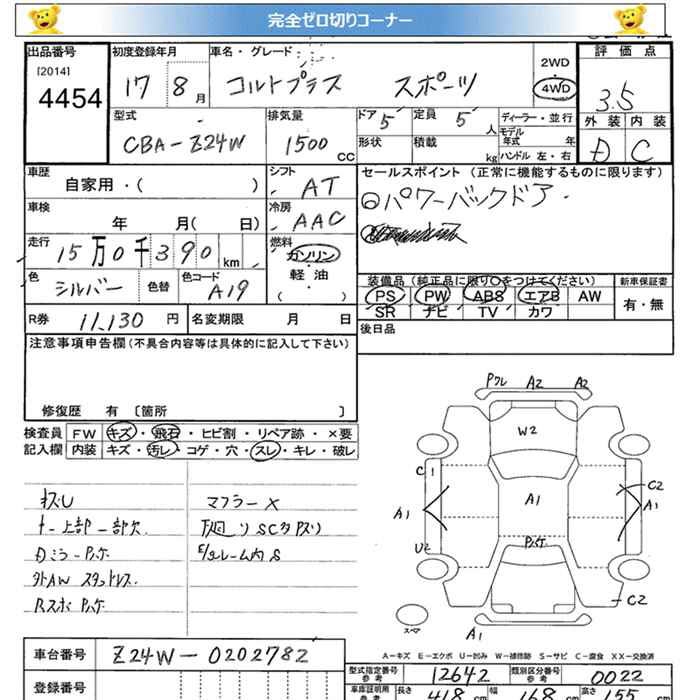 完全ゼロ切りコーナー
出品番号 [2014] 4454
初度登録年月 17 8月
車名・グレード コルトプラス スポーツ
2WD 4WD
評価点 3.5
外装 内装
D C
型式 CBA-Z24W
排気量 1500 cc
ドア 5 定員 5 人
形状 積載 kg
ディーラー・並行
モデル年式 年
ハンドル 左・右
車歴 自家用・( )
シフト AT
車検 年 月( 日)
冷房 AAC
走行 15万0千390 km
燃料 ガソリン 軽油 ( ・ )
色 シルバー 色替 色コード A19
R券 11,130 円 名変期限 月 日
セールスポイント (正常に機能するものに限ります)
パワーバックドア
装備品 (純正品に限り○をつけてください) 新車保証書
PS PW ABS エアB AW 有・無
SR ナビ TV カワ
後日品
注意事項申告欄(不具合内容等は具体的に記入して下さい)
修復歴 有 〔箇所 〕
検査員 FW キズ・飛石・ヒビ割・リペア跡・×要
記入欄 内装 キズ・汚レ・コゲ・穴・スレ・キレ・破レ
キズU マフラーX
ナー上部一部欠 下廻りSCタバリ
Dミラーアッケ E/gルーム内S
外AW スタッドレス
Rスポ アッケ
A2 A2
W2
C1 A1 C2
A1 A1
U2 C2
スペア A1
A-キズ E-エクボ U-凹み W-補修跡 S-サビ C-腐食 XX-交換済
車台番号 Z24W-0202782
登録番号
型式指定番号 参考 12642 類別区分番号 参考 0022
車庫証明用 参考 長さ 418 cm 幅 168 cm 高さ 155 cm